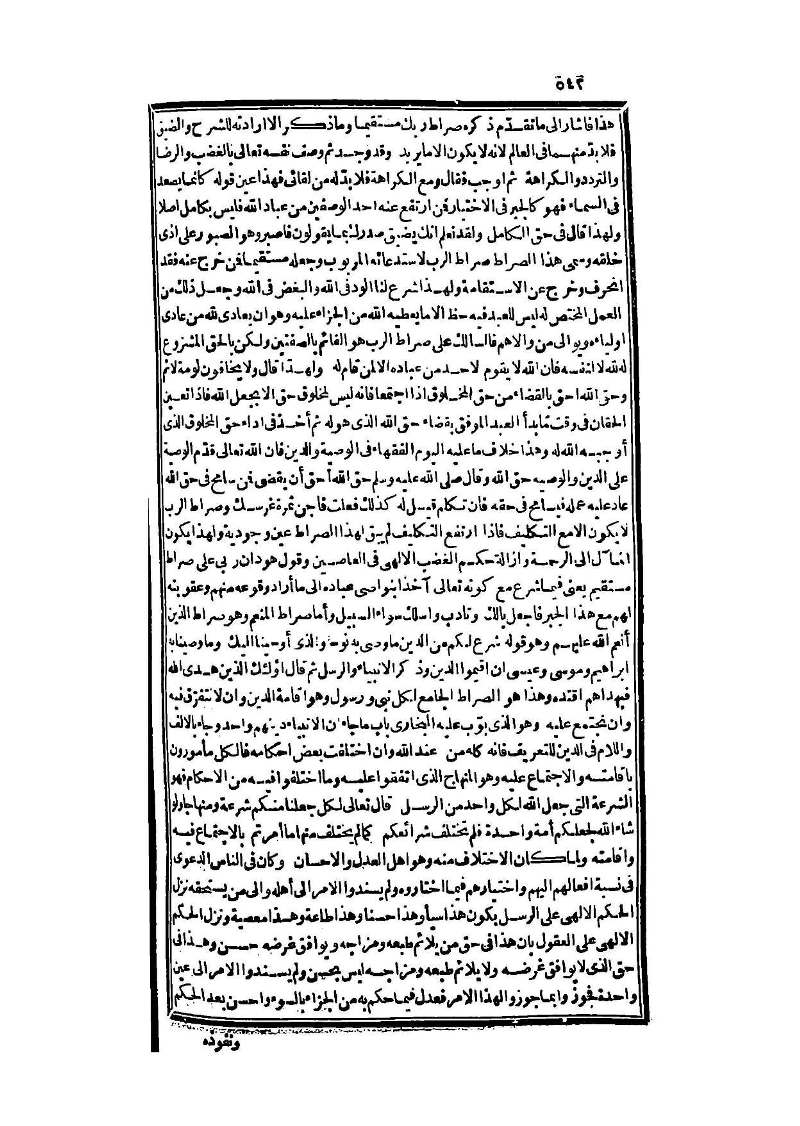 ٥٤٣
هذا فاشار الى ما تقدّم ذكره صراط ربك مستقيما وما ذكر الا ارادته للشرح والضيق
فلا بدّ منهما فى العالم لانه لا يكون الا ما يريد وقد وجد ثم وصف نفسه تعالى بالغضب والرضا
والتردد والكراهة ثم اوجب فقال ومع الكراهة فلا بدّ له من لقائى فهذا عين قوله كانما يصعد
فى السماء فهو كالجبر فى الاختيار فمن ارتفع عنه احد الوصفين من عباد الله فليس بكامل اصلا
ولهذا قال فى حق الكامل ولقد نعلم انك يضيق صدرك بما يقولون فاصبر وهو الصبور على اذى
خلقه وسمى هذا الصراط صراط الرب لاستدعائه المربوب وجعله مستقيما فمن خرج عنه فقد
انحرف وخرج عن الاستقامة ولهذا شرع لنا الود فى الله والبغض فى الله وجعل ذلك من
العمل المختص له ليس للعبد فيه حظ الا ما يعطيه الله من الجزاء عليه وهو ان يعادى لله من عادى
اولياءه ويوالى من والاهم فالسالك على صراط الرب هو القائم بالصفتين ولكن بالحق المشروع
له لله لا لنفسه فان الله لا يقوم لاحد من عباده الا لمن قام له ولهذا قال ولا يخافون لومة لائم
وحق الله احق بالقضاء من حق المخلوق اذا اجتمعا فانه ليس لمخلوق حق الا بجعل الله فاذا تعين
الحقان فى وقت مّا بدأ العبد الموفق بقضاء حق الله الذى هو له ثم أخذ فى اداء حق المخلوق الذى
أوجبه الله له وهذا خلاف ما عليه اليوم الفقهاء فى الوصية والدين فان الله تعالى قدّم الوصية
على الدين والوصيه حق الله وقال صلى الله عليه وسلم حق الله أحق أن يقضى فمن سامح فى حق الله
عاد عليه عمله فيسامح فى حقه فان تكلم قيل له كذلك فعلت فاجن ثمرة غرسك وصراط الرب
لا يكون الا مع التكليف فاذا ارتفع التكليف لم يبق لهذا الصراط عين وجودية ولهذا يكون
المآل الى الرحمة وازالة حكم الغضب الالهى فى العاصين وقول هود ان ربى على صراط
مستقيم يعنى فيما شرع مع كونه تعالى آخذا بنواصى عباده الى ما أراد وقوعه منهم وعقوبته
لهم مع هذا الجبر فاجعل بالك وتادب واسلك سواء السبيل وأما صراط المنعم وهو صراط الذين
أنعم الله عليهم وهو قوله شرع لكم من الدين ما وصى به نوحا والذى أوحينا اليك وما وصينا به
ابراهيم وموسى وعيسى ان اقيموا الدين وذكر الانبياء والرسل ثم قال اولئك الذين هدى الله
فبهداهم اقتده وهذا هو الصراط الجامع لكل نبى ورسول وهو اقامة الدين وان لا نتفرّق فيه
وان نجتمع عليه وهو الذى بوّب عليه البخارى باب ما جاء ان الانبياء دينهم واحد وجاء بالالف
واللام فى الدين للتعريف فانه كله من عند الله وان اختلفت بعض احكامه فالكل مأمورون
باقامته والاجتماع عليه وهو المنهاج الذى اتفقوا عليه وما اختلفوا فيه من الاحكام فهو
الشرعة التى جعل الله لكل واحد من الرسل قال تعالى لكل جعلنا منكم شرعة ومنهاجا ولو
شاء الله لجعلكم أمة واحدة فلم تختلف شرائعكم كما لم يختلف منها ما أمرتم بالاجتماع فيه
واقامته ولما كان الاختلاف منه وهو اهل العدل والاحسان وكان فى الناس الدعوى
فى نسبة افعالهم اليهم واختيارهم فيما اختاروه ولم يسندوا الامر الى أهله والى من يستحقه نزل
الحكم الالهى على الرسل بكون هذا سيأ وهذا حسنا وهذا طاعة وهذا معصية ونزل الحكم
الالهى على العقول بان هذا فى حق من يلائم طبعه ومزاجه ويوافق غرضه حسن وهذا فى
حق الذى لا يوافق غرضه ولا يلائم طبعه ومزاجه ليس بحسن ولم يسندوا الامر الى عين
واحدة فجوزوا بما جوزوا لهذا الامر فعدل فيما حكم به من الجزاء بالسوء واحسن بعد الحكم
ونفوذه